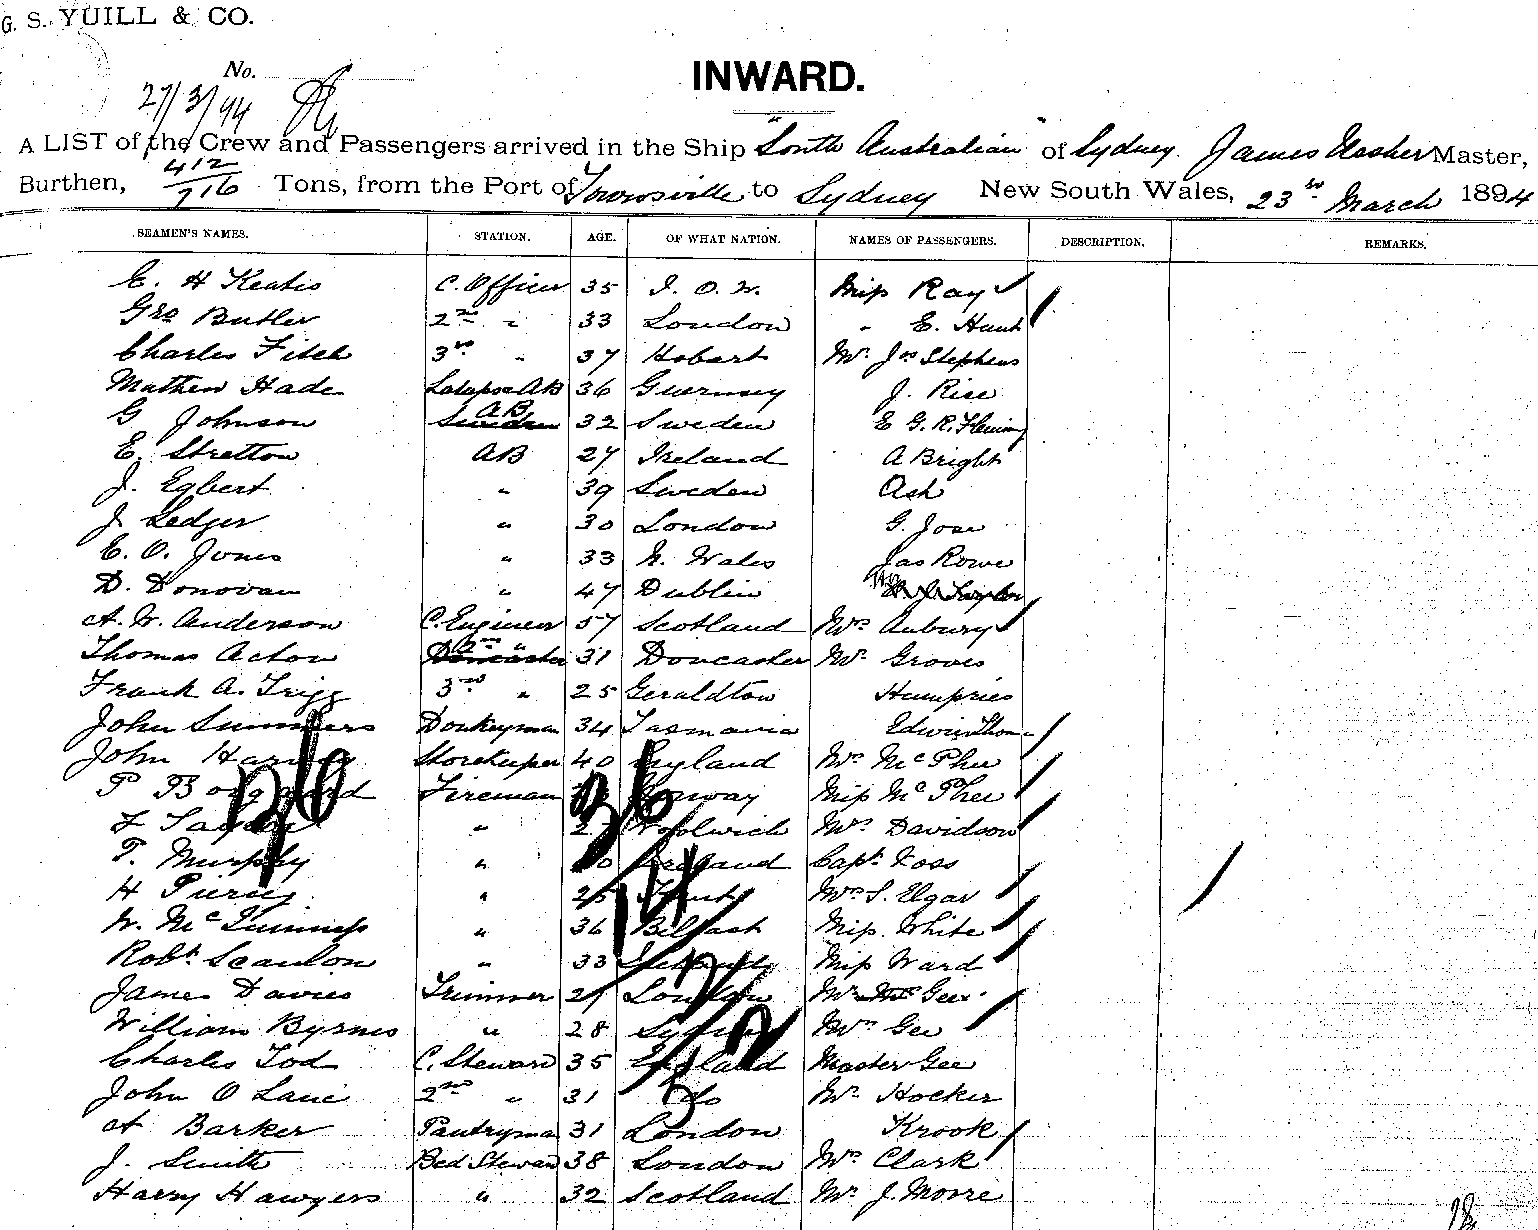 G. S. YUILL & CO.
No.
27/3/94
INWARD.
A LIST of the Crew and Passengers arrived in the Ship "South Australian" of Sydney James Master,
Burthen, 412/716 Tons, from the Port of Townsville to Sydney New South Wales, 23rd March 1894
SEAMEN'S NAMES. STATION. AGE. OF WHAT NATION. NAMES OF PASSENGERS. DESCRIPTION. REMARKS.
E. H Keatis C. Officer 35 I. O. W. Miss Ray
Geo Butler 2nd " 33 London " E. Hunt
Charles Fitch 3rd " 37 Hobart Mr Jas Stephens
Mathew Hade AB 36 Guernsey J. Rise
G Johnson AB 32 Sweden E G. R. Fleming
E. Stretton AB 27 Ireland A Bright
J. Egbert " 39 Sweden Ash
J. Ledger " 30 London G. Jose
E. O. Jones " 33 N. Wales Jas Rowe
D. Donovan " 47 Dublin
A. W. Anderson C. Engineer 57 Scotland Mrs Aubury
Thomas Acton 2nd " 31 Doncaster Mr Groves
Frank A. Trigg 3rd " 25 Geraldton Humpries
John Summers Donkeyman 34 Tasmania Edwin Thom
John Harvey Storekeeper 40 England Mr McPhee
P Fireman Norway Miss McPhee
F " 27 Woolwich Mrs Davidson
P. Murphy " Ireland Capt Voss
H Piercy " 25 Mrs S. Elgar
W. McGuinness " 36 Belfast Miss White
Robt Scanlon " 33 Miss Ward
James Davies Trimmer 27 London Mr Gee
William Byrnes " 28 Sydney Mrs Gee
Charles Tod C. Steward 35 England Master Gee
John O Lane 2nd " 31 do Mr Hocker
A Barker Pantryman 31 London Krook
J. Smith Bed Steward 38 London Mrs Clark
Harry Hawyers " 32 Scotland Mr J. Moore